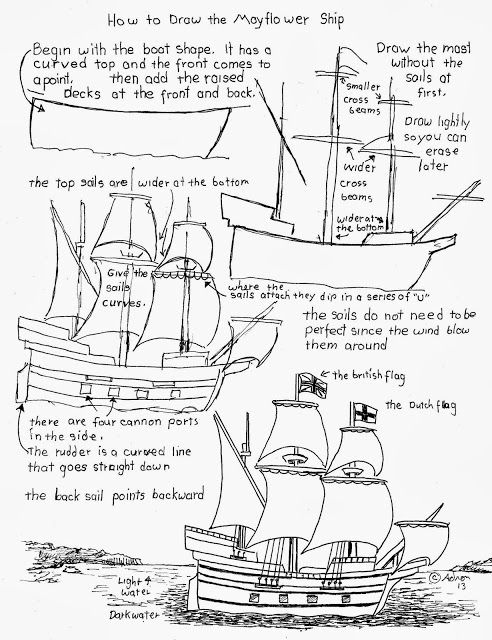 How to Draw the Mayflower Ship
Begin with the boat shape. it has a
curved top and the front comes to
a point. then add the raised
Decks at the front and back.
Draw the mast
without the
sails at
first.
smaller
cross
beams
Draw lightly
so you can
erase
later
wider
cross
beams
wider at
the bottom
the top sails are wider at the bottom
Give the
sails
curves.
where the
sails attach they dip in a series of "U"
the sails do not need to be
perfect since the wind blow
them around
the british flag
the Dutch flag
there are four cannon ports
in the side.
The rudder is a curved line
that goes straight down
the back sail points backward
Light
water
Dark water
©
13